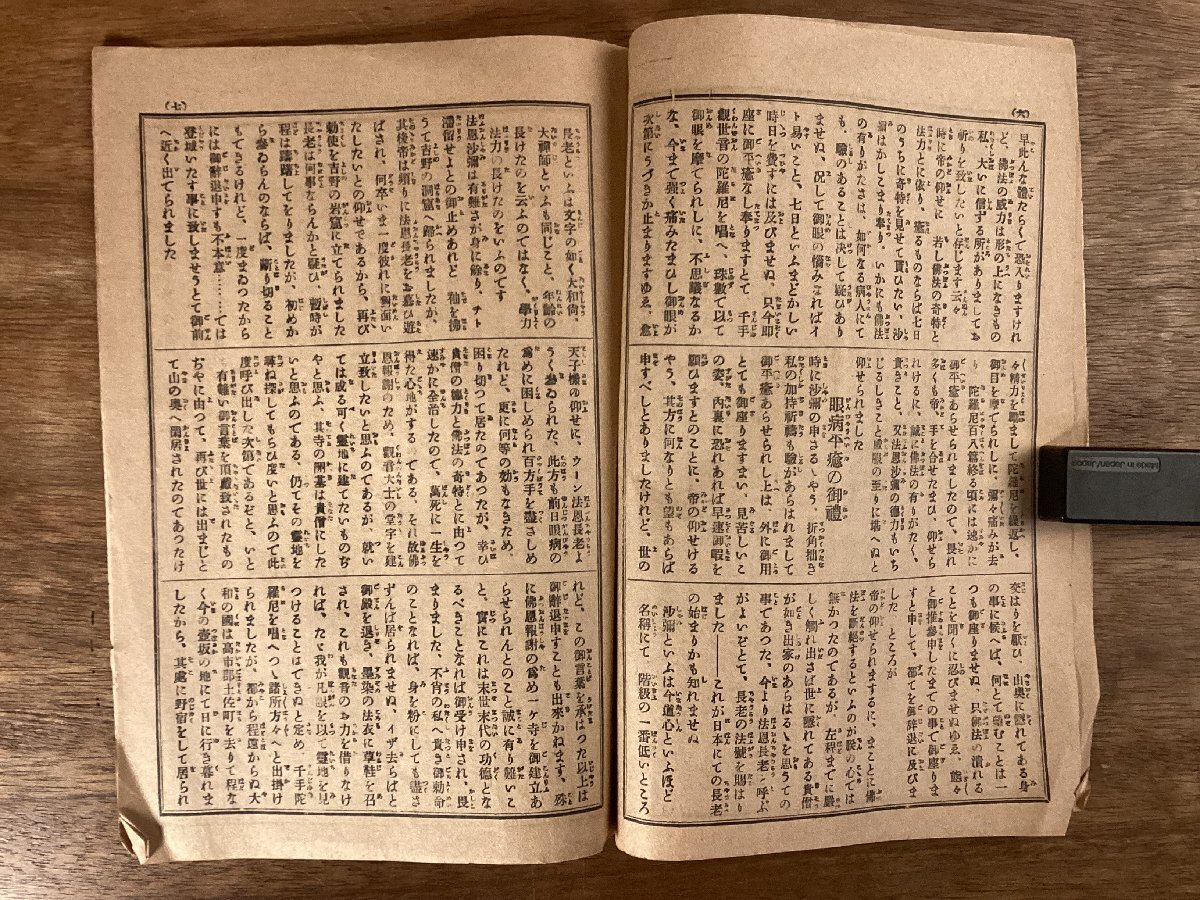 (六)
早此んな體たらくて恐入りますけれ
ど、佛法の威力は形の上になきもの
私、大いに信ずる所がありましてお
祈りを致したいと存じます云々
時に帝の仰せに 若し佛法の奇特と
法力とに依り、癒るものならば七日
のうちに奇特を見せて貰ひたい、沙
彌はかしこまり奉り、いかにも佛法
の有りがたさは、如何なる病人にて
も、驗のあることは決して疑ひあり
ませぬ、况して御眼の惱みなればイ
ト易いこと、七日といふまどかしい
時日を費すには及びませぬ、只今即
座に御平癒なし奉りますとて 千手
觀世音の陀羅尼を唱へ、珠數て以て
御眼を摩てられしに、不思議なるか
な、今まて强く痛みたまひし御眼が
次第にうづきか止まりますゆゑ、愈
々精力を勵まして陀羅尼を繰返し、
御目を摩てられしに、彌々痛みが去
り 陀羅尼百八篇終る頃には速かに
御平癒あらせられましたので、畏れ
多くも帝、手を合せたまひ、仰せら
れけるに、誠に佛法の有りがたく、
貴きことに、又法恩沙彌の德力もいち
じるしきこと感服の至りに堪へぬと
仰せられました
眼病平癒の御禮
時に沙彌の申さるゝやう、折角拙き
私の加持祈禱も驗があらはれまして
御平癒あらせられし上は、外に御用
とても御座りますまい、見苦しいこ
の姿、内裏に恐れあれば早速御暇を
願ひますとのことに、帝の仰せける
やう、其方に何なりとも望もあらば
申すべしとありましたけれど、世の
交はりを厭ひ 山奥に隱れてある身
の事に候へば、何とて望むことは一
つも御座りませぬ、只佛法の潰れる
ことを聞くに忍びませぬゆゑ、態々
と御推參申したまての事で御座りま
すと申して、都てを御辭退に及びま
した ところが
帝の仰せられまするに、まことは佛
法を斷絶するといふのが朕の心では
無かつたのであるが、左程までに嚴
しく觸れ出さば世に隱れてある貴僧
が如き出家のあらはるゝを思うての
事であつた、今より法恩長老と呼ぶ
がよいぞとて、長老の法號を賜はり
ました――これが日本にての長老
の始まりかも知れませぬ
沙彌といふは今道心といふほど
名稱にて 階級の一番低いところ
(七)
長老といふは文字の如く大和尚、
大禪師といふも同じこと、年齡の
長けたのを云ふのてはなく、學力
法力の長けたのをいふのです
法恩沙彌は有難さが身に餘り、チト
滯留せよとの御止めあれど 袖を拂
うて吉野の洞窟へ歸られましたが、
其後帝は頻りに法恩長老をお慕ひ遊
ばされ、何卒いま一度彼れに對面い
たしたいとの仰せであるから、再び
勅使を吉野の岩窟に立てられました
長老は何事ならんかと疑ひ、暫時が
程は躊躇してをりましたが、初めか
ら參ゐらんのならば、斷り切ること
もてきるけれど、一度まゐつたから
には御辭退申すも不本意………ては
登城いたす事に致しませうとて御前
へ近く出てられました
天子樣の仰せに、ウーン法恩長老よ
うく參ゐられた、此方も前日眼病の
爲めに困しめられ百方手を盡さしめ
たれど、更に何等の効もなきため、
困り切つて居たのてあつたが、幸ひ
貴僧の德力と佛法の奇特とに由つて
速かに全治したので、萬死に一生を
得た心地がする のてある、それ故佛
恩報謝のため、觀音大士の堂宇を建
立致したいと思ふのてあるが、就い
ては成る可く靈地に建てたいものぢ
やと思ふ、其寺の開基は貴僧にした
いと思ふのてある、仍てその靈地を
尋ね探してもらひ度いと思ふので此
度呼び出した次第であるぞと、いと
有難い御言葉を頂戴致されたもの
ぢやに由つて、再び世には出まじと
て山の奥へ閑居されたのてあつたけ
れど、この御言葉を承はつた以上は
御辭退申すことも出來かねます、殊
に佛恩報謝の爲め一ヶ寺を御建立あ
らせられんとのこと誠に有り難いこ
と、實にこれは末世末代の功德とな
るべきことなれば御受け申され、畏
まりました、不肖の私へ貴き御勅命
のことなれば、身を粉にしても盡さ
ずんば居られませぬ、イザ去らばと
御殿を退き、墨染の法衣に草鞋を召
され、これも觀音のお力を借りなけ
れば、たゞ我が凡眼を以て靈地を見
つけることはてきぬと定め、千手陀
羅尼を唱へつゝ諸所方々へと出掛け
られましたが、都から程遠からぬ大
和の國は高市郡土佐町を去りて程な
く今の壺坂の地にて日に行き暮れま
したから、其處に野宿をして居られ
Made in Japan/Japon